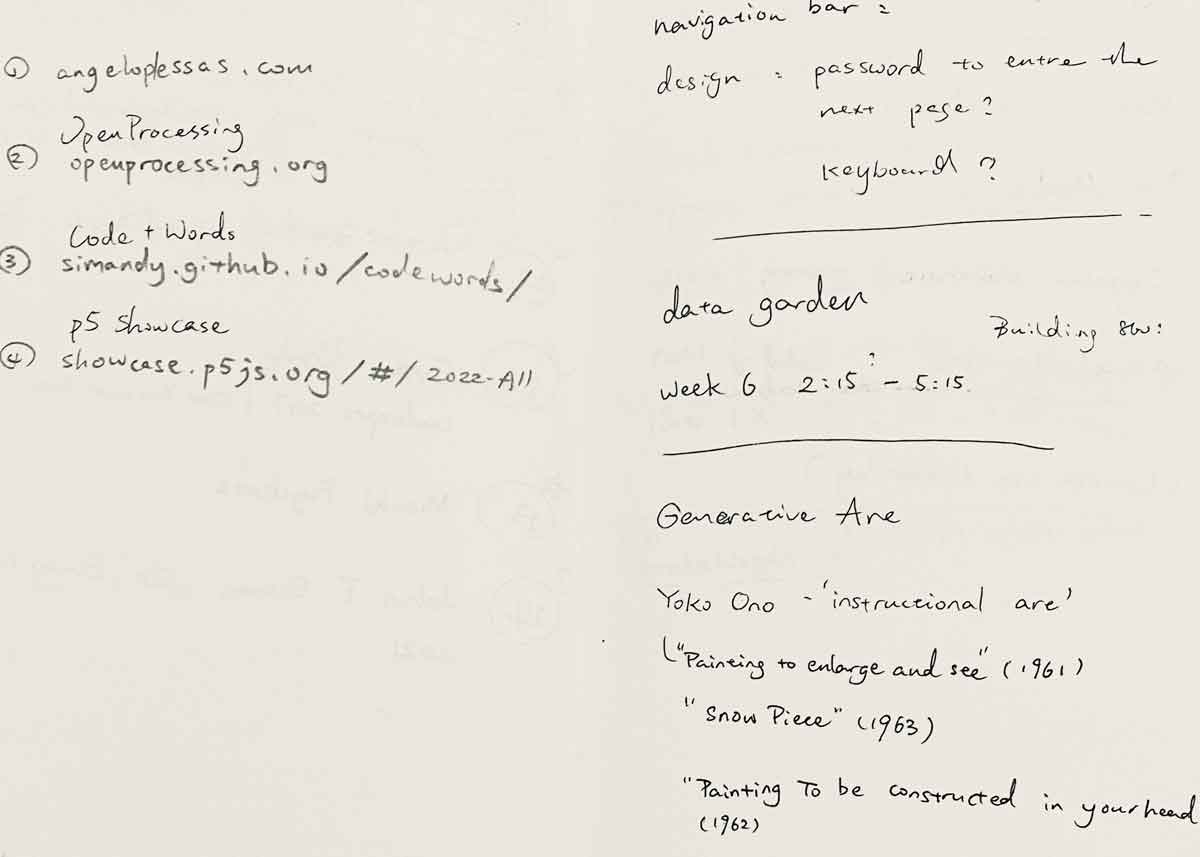 ① angeloplessas.com
OpenProcessing
② openprocessing.org
Code + Words
③ simandy.github.io/codewords/
p5 Showcase
④ showcase.p5js.org/#/2022-All
navigation bar :
design : password to entre the
next page?
keyboard?
data garden
Building 8W:
?
week 6 2:15 - 5:15.
Generative Art
Yoko Ono - 'instructional art'
"Painting to enlarge and see" (1961)
"Snow Piece" (1963)
"Painting To be constructed in your head
(1962)